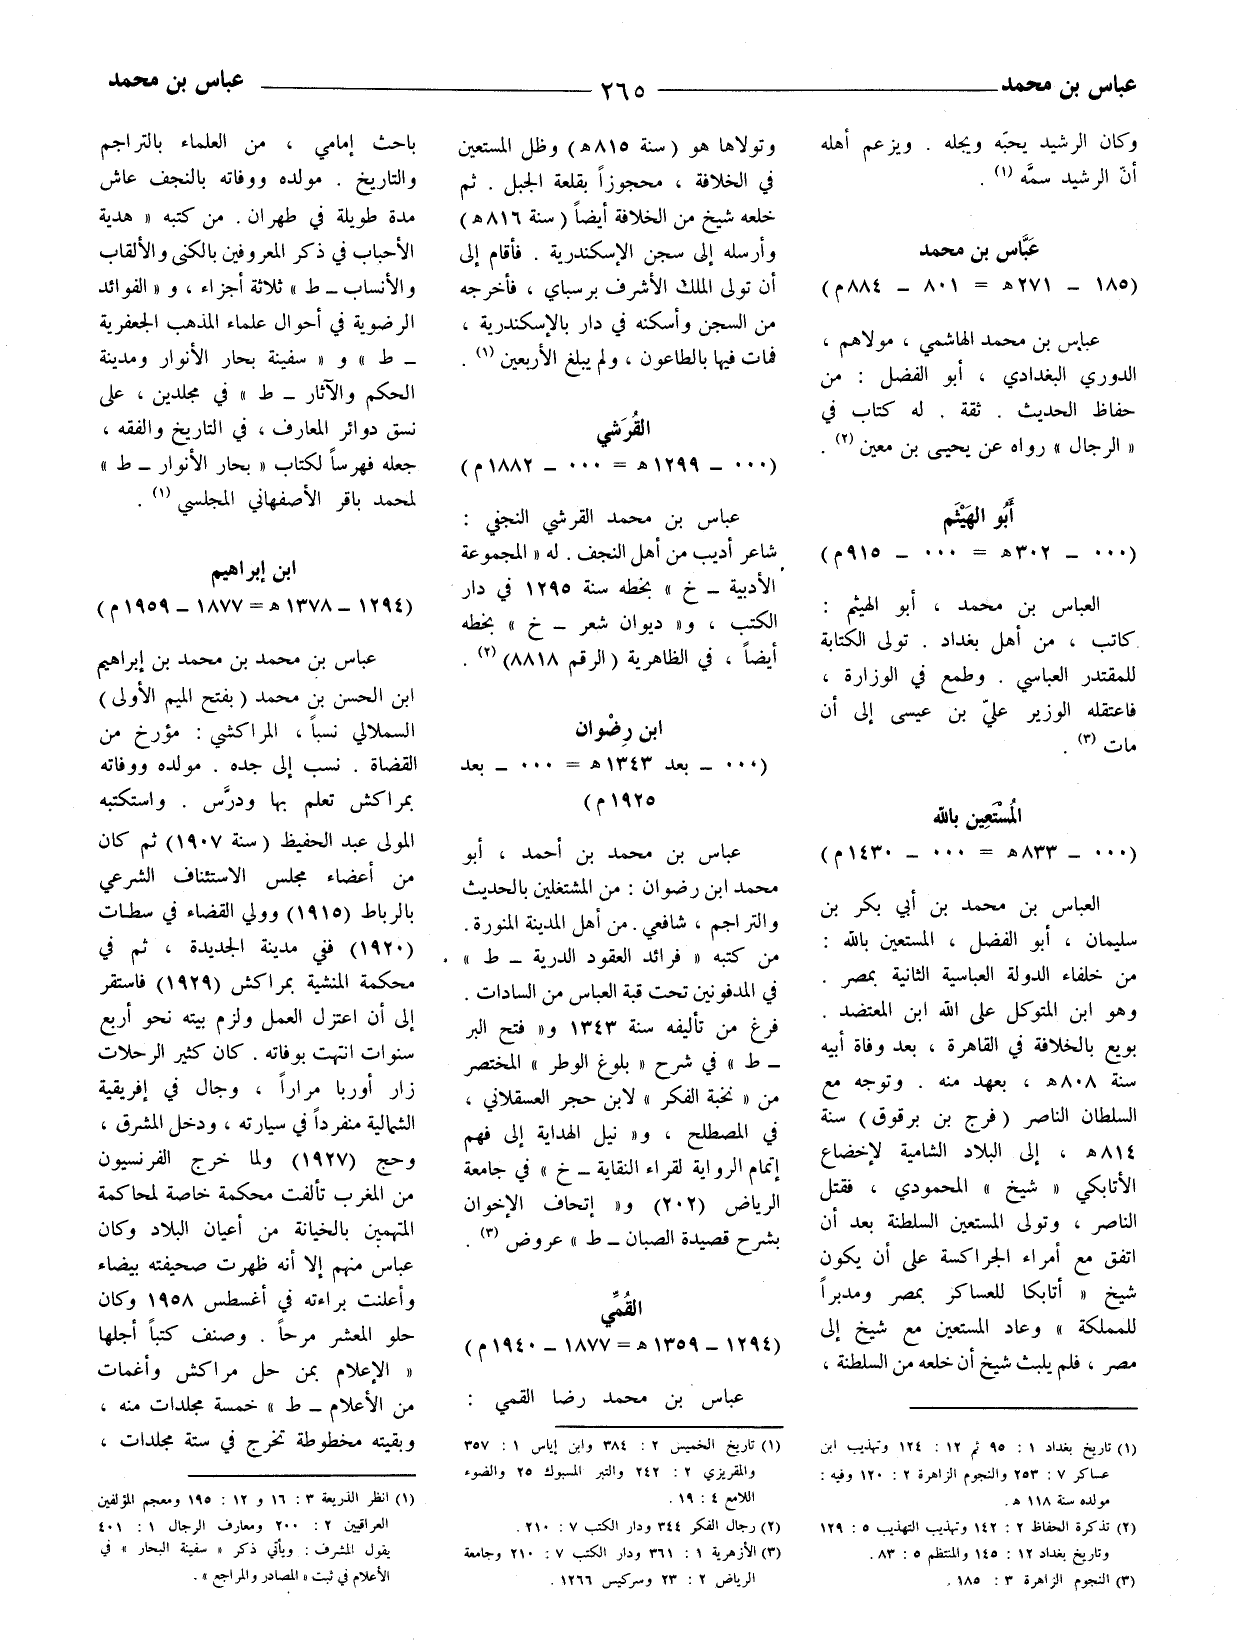 عباس بن محمد ٢٦٥ عباس بن محمد
وكان الرشيد يحبّه ويجله . ويزعم أهله
أنّ الرشيد سمَّه (١) .
عَبَّاس بن محمد
(١٨٥ ـ ٢٧١ هـ = ٨٠١ ـ ٨٨٤ م)
عباس بن محمد الهاشمي ، مولاهم ،
الدوري البغدادي ، أبو الفضل : من
حفاظ الحديث . ثقة . له كتاب في
« الرجال » رواه عن يحيى بن معين (٢) .
أَبُو الهَيْثَم
(٠٠٠ ـ ٣٠٢ هـ = ٠٠٠ ـ ٩١٥ م)
العباس بن محمد ، أبو الهيثم :
كاتب ، من أهل بغداد . تولى الكتابة
للمقتدر العباسي . وطمع في الوزارة ،
فاعتقله الوزير عليّ بن عيسى إلى أن
مات (٣) .
المُسْتَعِين بالله
(٠٠٠ ـ ٨٣٣ هـ = ٠٠٠ ـ ١٤٣٠ م)
العباس بن محمد بن أبي بكر بن
سليمان ، أبو الفضل ، المستعين بالله :
من خلفاء الدولة العباسية الثانية بمصر .
وهو ابن المتوكل على الله ابن المعتضد .
بويع بالخلافة في القاهرة ، بعد وفاة أبيه
سنة ٨٠٨ هـ ، بعهد منه . وتوجه مع
السلطان الناصر (فرج بن برقوق) سنة
٨١٤ هـ ، إلى البلاد الشامية لإخضاع
الأتابكي « شيخ » المحمودي ، فقتل
الناصر ، وتولى المستعين السلطنة بعد أن
اتفق مع أمراء الجراكسة على أن يكون
شيخ « أتابكا للعساكر بمصر ومدبراً
للمملكة » وعاد المستعين مع شيخ إلى
مصر ، فلم يلبث شيخ أن خلعه من السلطنة ،
(١) تاريخ بغداد ١ : ٩٥ ثم ١٢ : ١٢٤ وتهذيب ابن
عساكر ٧ : ٢٥٣ والنجوم الزاهرة ٢ : ١٢٠ وفيه :
مولده سنة ١١٨ هـ .
(٢) تذكرة الحفاظ ٢ : ١٤٢ وتهذيب التهذيب ٥ : ١٢٩
وتاريخ بغداد ١٢ : ١٤٥ والمنتظم ٥ : ٨٣ .
(٣) النجوم الزاهرة ٣ : ١٨٥ .
وتولاها هو (سنة ٨١٥ هـ) وظل المستعين
في الخلافة ، محجوزاً بقلعة الجبل . ثم
خلعه شيخ من الخلافة أيضاً (سنة ٨١٦ هـ)
وأرسله إلى سجن الإسكندرية . فأقام إلى
أن تولى الملك الأشرف برسباي ، فأخرجه
من السجن وأسكنه في دار بالإسكندرية ،
فمات فيها بالطاعون ، ولم يبلغ الأربعين (١) .
القُرَشي
(٠٠٠ ـ ١٢٩٩ هـ = ٠٠٠ ـ ١٨٨٢ م)
عباس بن محمد القرشي النجفي :
شاعر أديب من أهل النجف . له « المجموعة
الأدبية ـ خ » بخطه سنة ١٢٩٥ في دار
الكتب ، و« ديوان شعر ـ خ » بخطه
أيضاً ، في الظاهرية (الرقم ٨٨١٨) (٢) .
ابن رِضْوان
(٠٠٠ ـ بعد ١٣٤٣ هـ = ٠٠٠ ـ بعد
١٩٢٥ م)
عباس بن محمد بن أحمد ، أبو
محمد ابن رضوان : من المشتغلين بالحديث
والتراجم ، شافعي . من أهل المدينة المنورة .
من كتبه « فرائد العقود الدرية ـ ط » ،
في المدفونين تحت قبة العباس من السادات .
فرغ من تأليفه سنة ١٣٤٣ و« فتح البر
ـ ط » في شرح « بلوغ الوطر » المختصر
من « نخبة الفكر » لابن حجر العسقلاني ،
في المصطلح ، و« نيل الهداية إلى فهم
إتمام الرواية لقراء النقاية ـ خ » في جامعة
الرياض (٢٠٢) و« إتحاف الإخوان
بشرح قصيدة الصبان ـ ط » عروض (٣) .
القُمِّي
(١٢٩٤ ـ ١٣٥٩ هـ = ١٨٧٧ ـ ١٩٤٠ م)
عباس بن محمد رضا القمي :
(١) تاريخ الخميس ٢ : ٣٨٤ وابن إياس ١ : ٣٥٧
والمقريزي ٢ : ٢٤٢ والتبر المسبوك ٢٥ والضوء
اللامع ٤ : ١٩ .
(٢) رجال الفكر ٣٤٤ ودار الكتب ٧ : ٢١٠ .
(٣) الأزهرية ١ : ٣٦١ ودار الكتب ٧ : ٢١٠ وجامعة
الرياض ٢ : ٢٣ وسركيس ١٢٦٦ .
باحث إمامي ، من العلماء بالتراجم
والتاريخ . مولده ووفاته بالنجف عاش
مدة طويلة في طهران . من كتبه « هدية
الأحباب في ذكر المعروفين بالكنى والألقاب
والأنساب ـ ط » ثلاثة أجزاء ، و « الفوائد
الرضوية في أحوال علماء المذهب الجعفرية
ـ ط » و « سفينة بحار الأنوار ومدينة
الحكم والآثار ـ ط » في مجلدين ، على
نسق دوائر المعارف ، في التاريخ والفقه ،
جعله فهرساً لكتاب « بحار الأنوار ـ ط »
لمحمد باقر الأصفهاني المجلسي (١) .
ابن إبراهيم
(١٢٩٤ ـ ١٣٧٨ هـ = ١٨٧٧ ـ ١٩٥٩ م)
عباس بن محمد بن محمد بن إبراهيم
ابن الحسن بن محمد (بفتح الميم الأولى)
السملالي نسباً ، المراكشي : مؤرخ من
القضاة . نسب إلى جده . مولده ووفاته
بمراكش تعلم بها ودرَّس . واستكتبه
المولى عبد الحفيظ (سنة ١٩٠٧) ثم كان
من أعضاء مجلس الاستئناف الشرعي
بالرباط (١٩١٥) وولي القضاء في سطات
(١٩٢٠) ففي مدينة الجديدة ، ثم في
محكمة المنشية بمراكش (١٩٢٩) فاستقر
إلى أن اعتزل العمل ولزم بيته نحو أربع
سنوات انتهت بوفاته . كان كثير الرحلات
زار أوربا مراراً ، وجال في إفريقية
الشمالية منفرداً في سيارته ، ودخل المشرق ،
وحج (١٩٢٧) ولما خرج الفرنسيون
من المغرب تألفت محكمة خاصة لمحاكمة
المتهمين بالخيانة من أعيان البلاد وكان
عباس منهم إلا أنه ظهرت صحيفته بيضاء
وأعلنت براءته في أغسطس ١٩٥٨ وكان
حلو المعشر مرحاً . وصنف كتباً أجلها
« الإعلام بمن حل مراكش وأغمات
من الأعلام ـ ط » خمسة مجلدات منه ،
وبقيته مخطوطة تخرج في ستة مجلدات ،
(١) انظر الذريعة ٣ : ١٦ و ١٢ : ١٩٥ ومعجم المؤلفين
العراقيين ٢ : ٢٠٠ ومعارف الرجال ١ : ٤٠١
يقول المشرف : ويأتي ذكر « سفينة البحار » في
الأعلام في ثبت « المصادر والمراجع » .